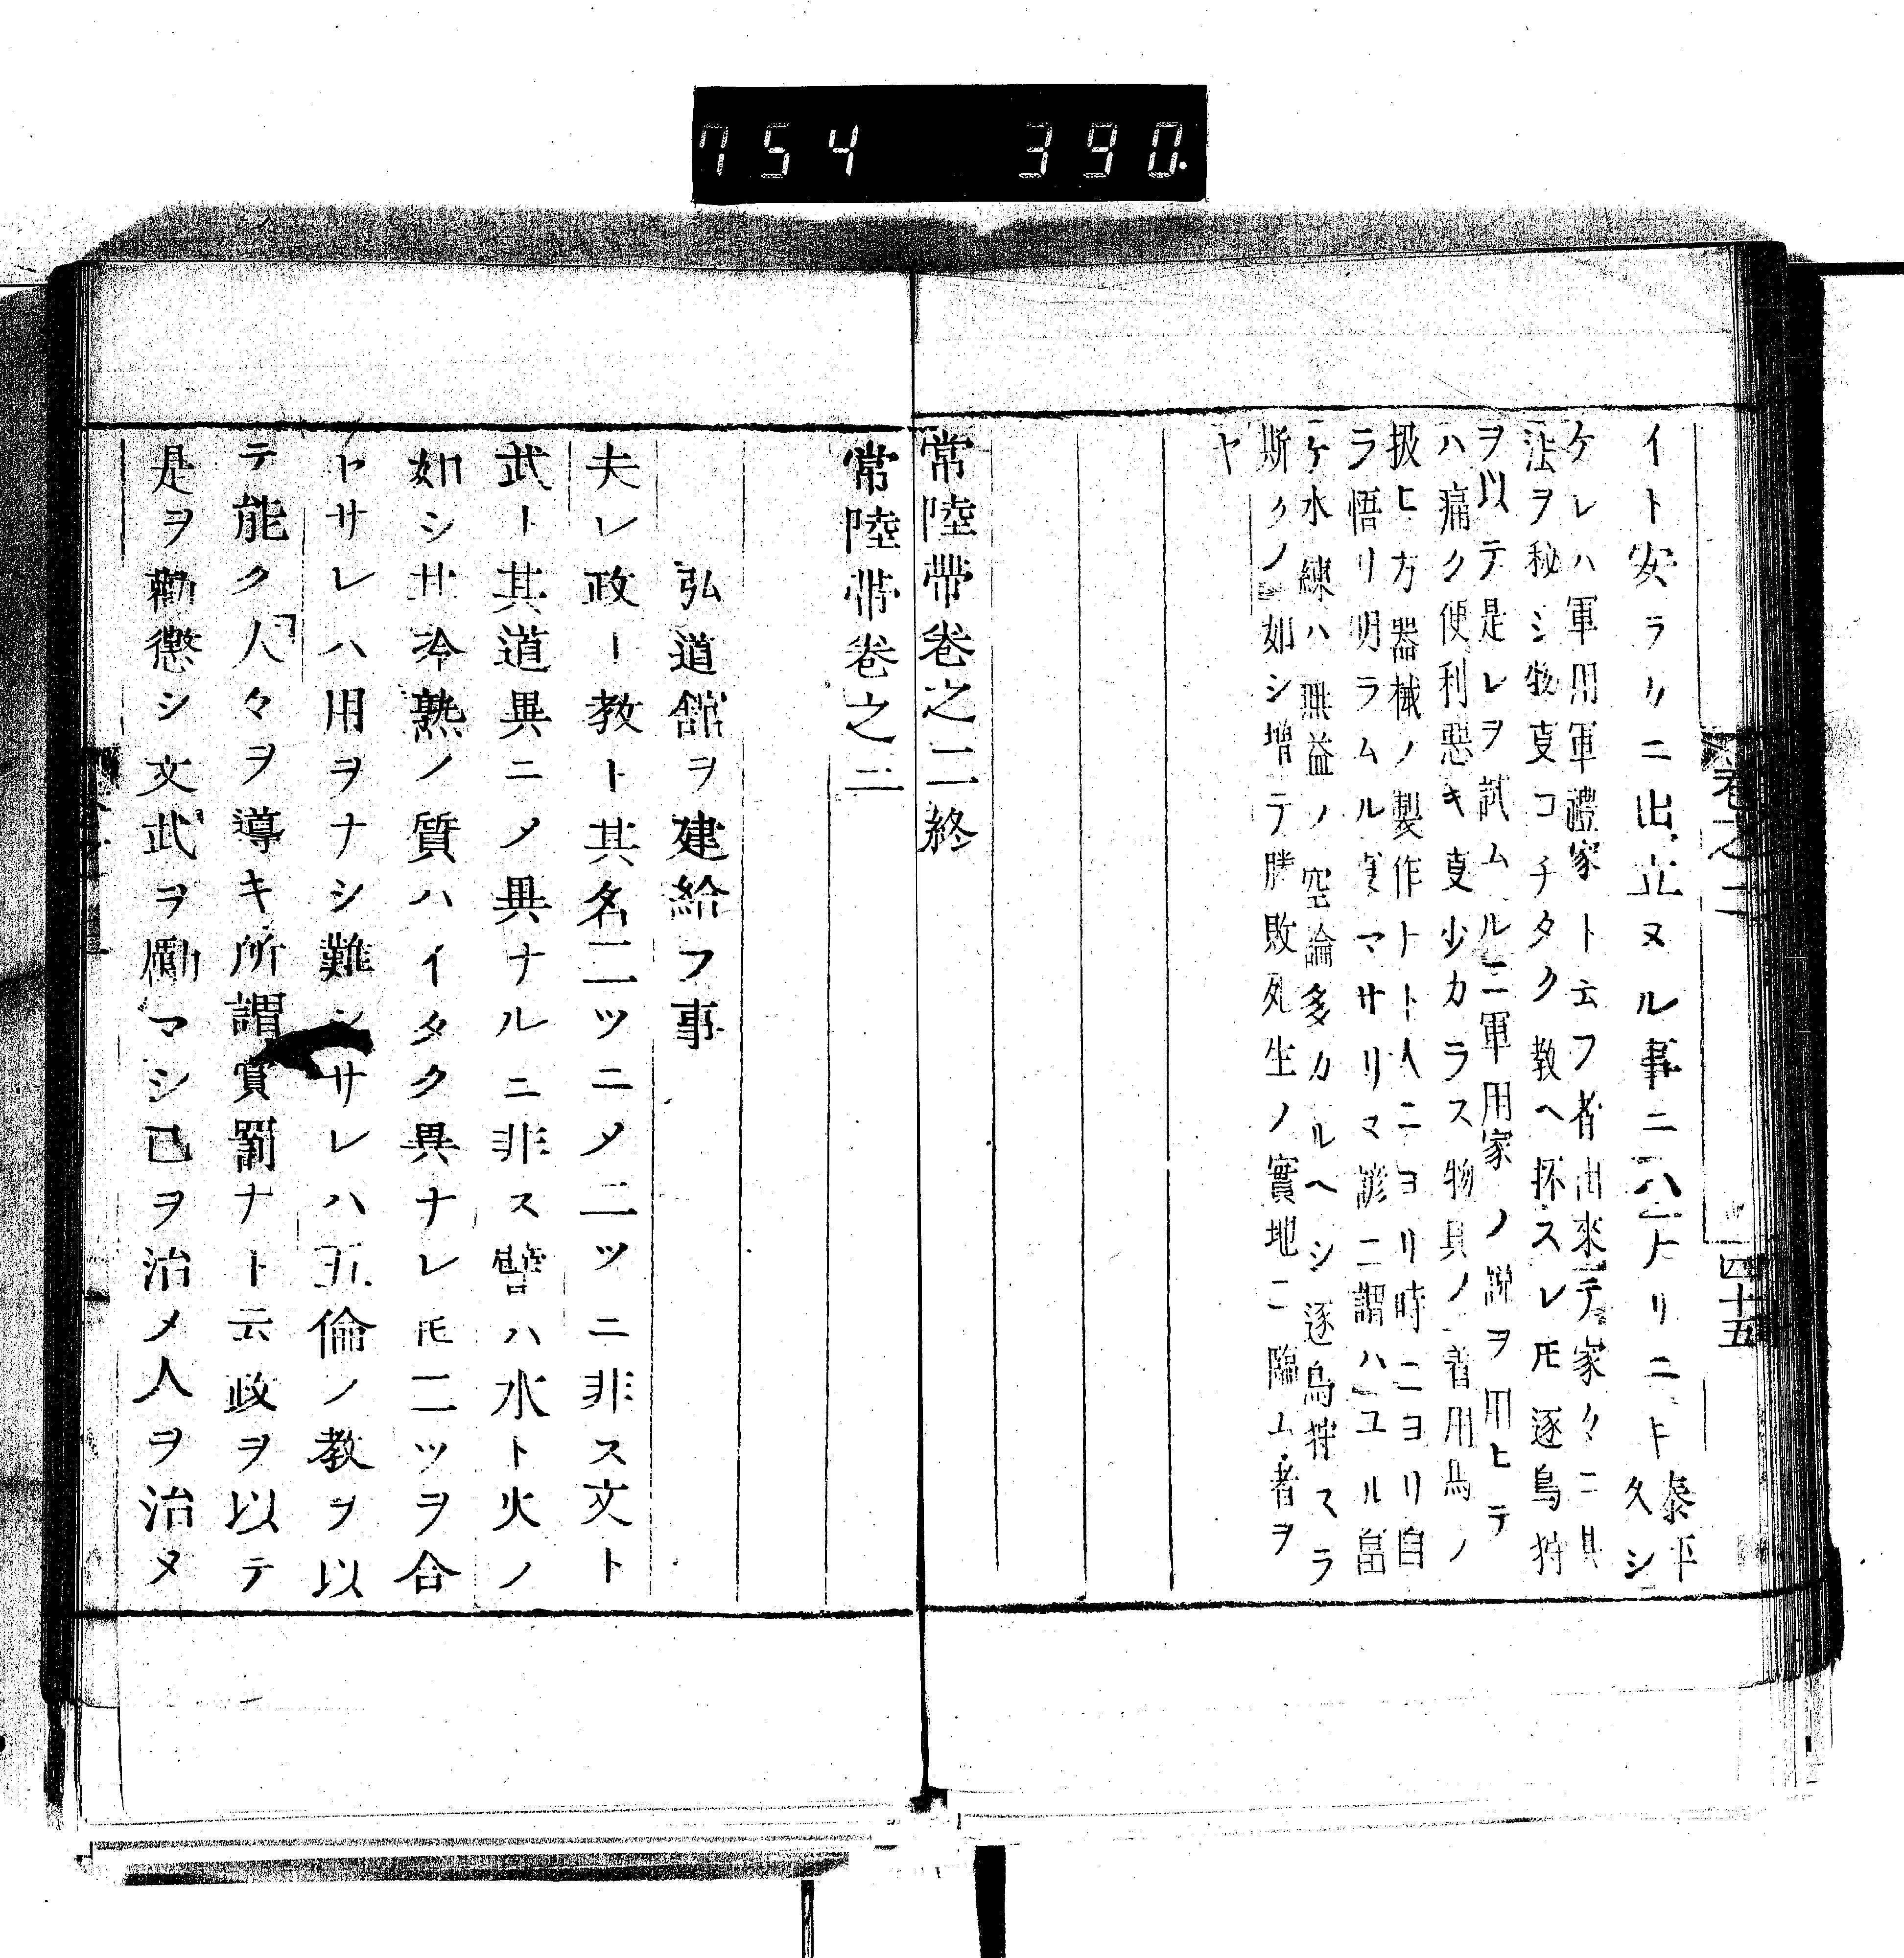 754 390.
卷之二
四十五
イト安ラケニ出立ヌル事ニハナリニキ泰平久シ
ケレハ軍用軍禮家ト云フ者出來テ家々ニ其
法ヲ秘シ物夏コチタク教ヘ抔スレ𪜈逐鳥狩
ヲ以テ是レヲ試ムルニ軍用家ノ說ヲ用ヒテ
ハ痛ク便利悪キ夏少カラス物具ノ着用馬ノ
扱ヒ方器械ノ製作ナト人ニヨリ時ニヨリ自
ラ悟リ明ラムル夏マサリヌ諺ニ謂ハユル畠
ケ水練ハ無益ノ空論多カルヘシ逐鳥狩スラ
斯クノ如シ增テ勝敗死生ノ實地ニ臨ム者ヲ
ヤ
常陸帶卷之二終
常陸帶卷之三
弘道館ヲ建給フ事
夫レ政ー教ト其名二ツニメ二ツニ非ス文ト
武ト其道異ニメ異ナルニ非ス譬ハ水ト火ノ
如シ其冷熱ノ質ハイタク異ナレ𪜈二ツヲ合
ヤサレハ用ヲナシ難シサレハ五倫ノ教ヲ以
テ能ク人々ヲ導キ所謂賞罰ナト云政ヲ以テ
是ヲ勸懲シ文武ヲ勵マシ己ヲ治メ人ヲ治ヌ